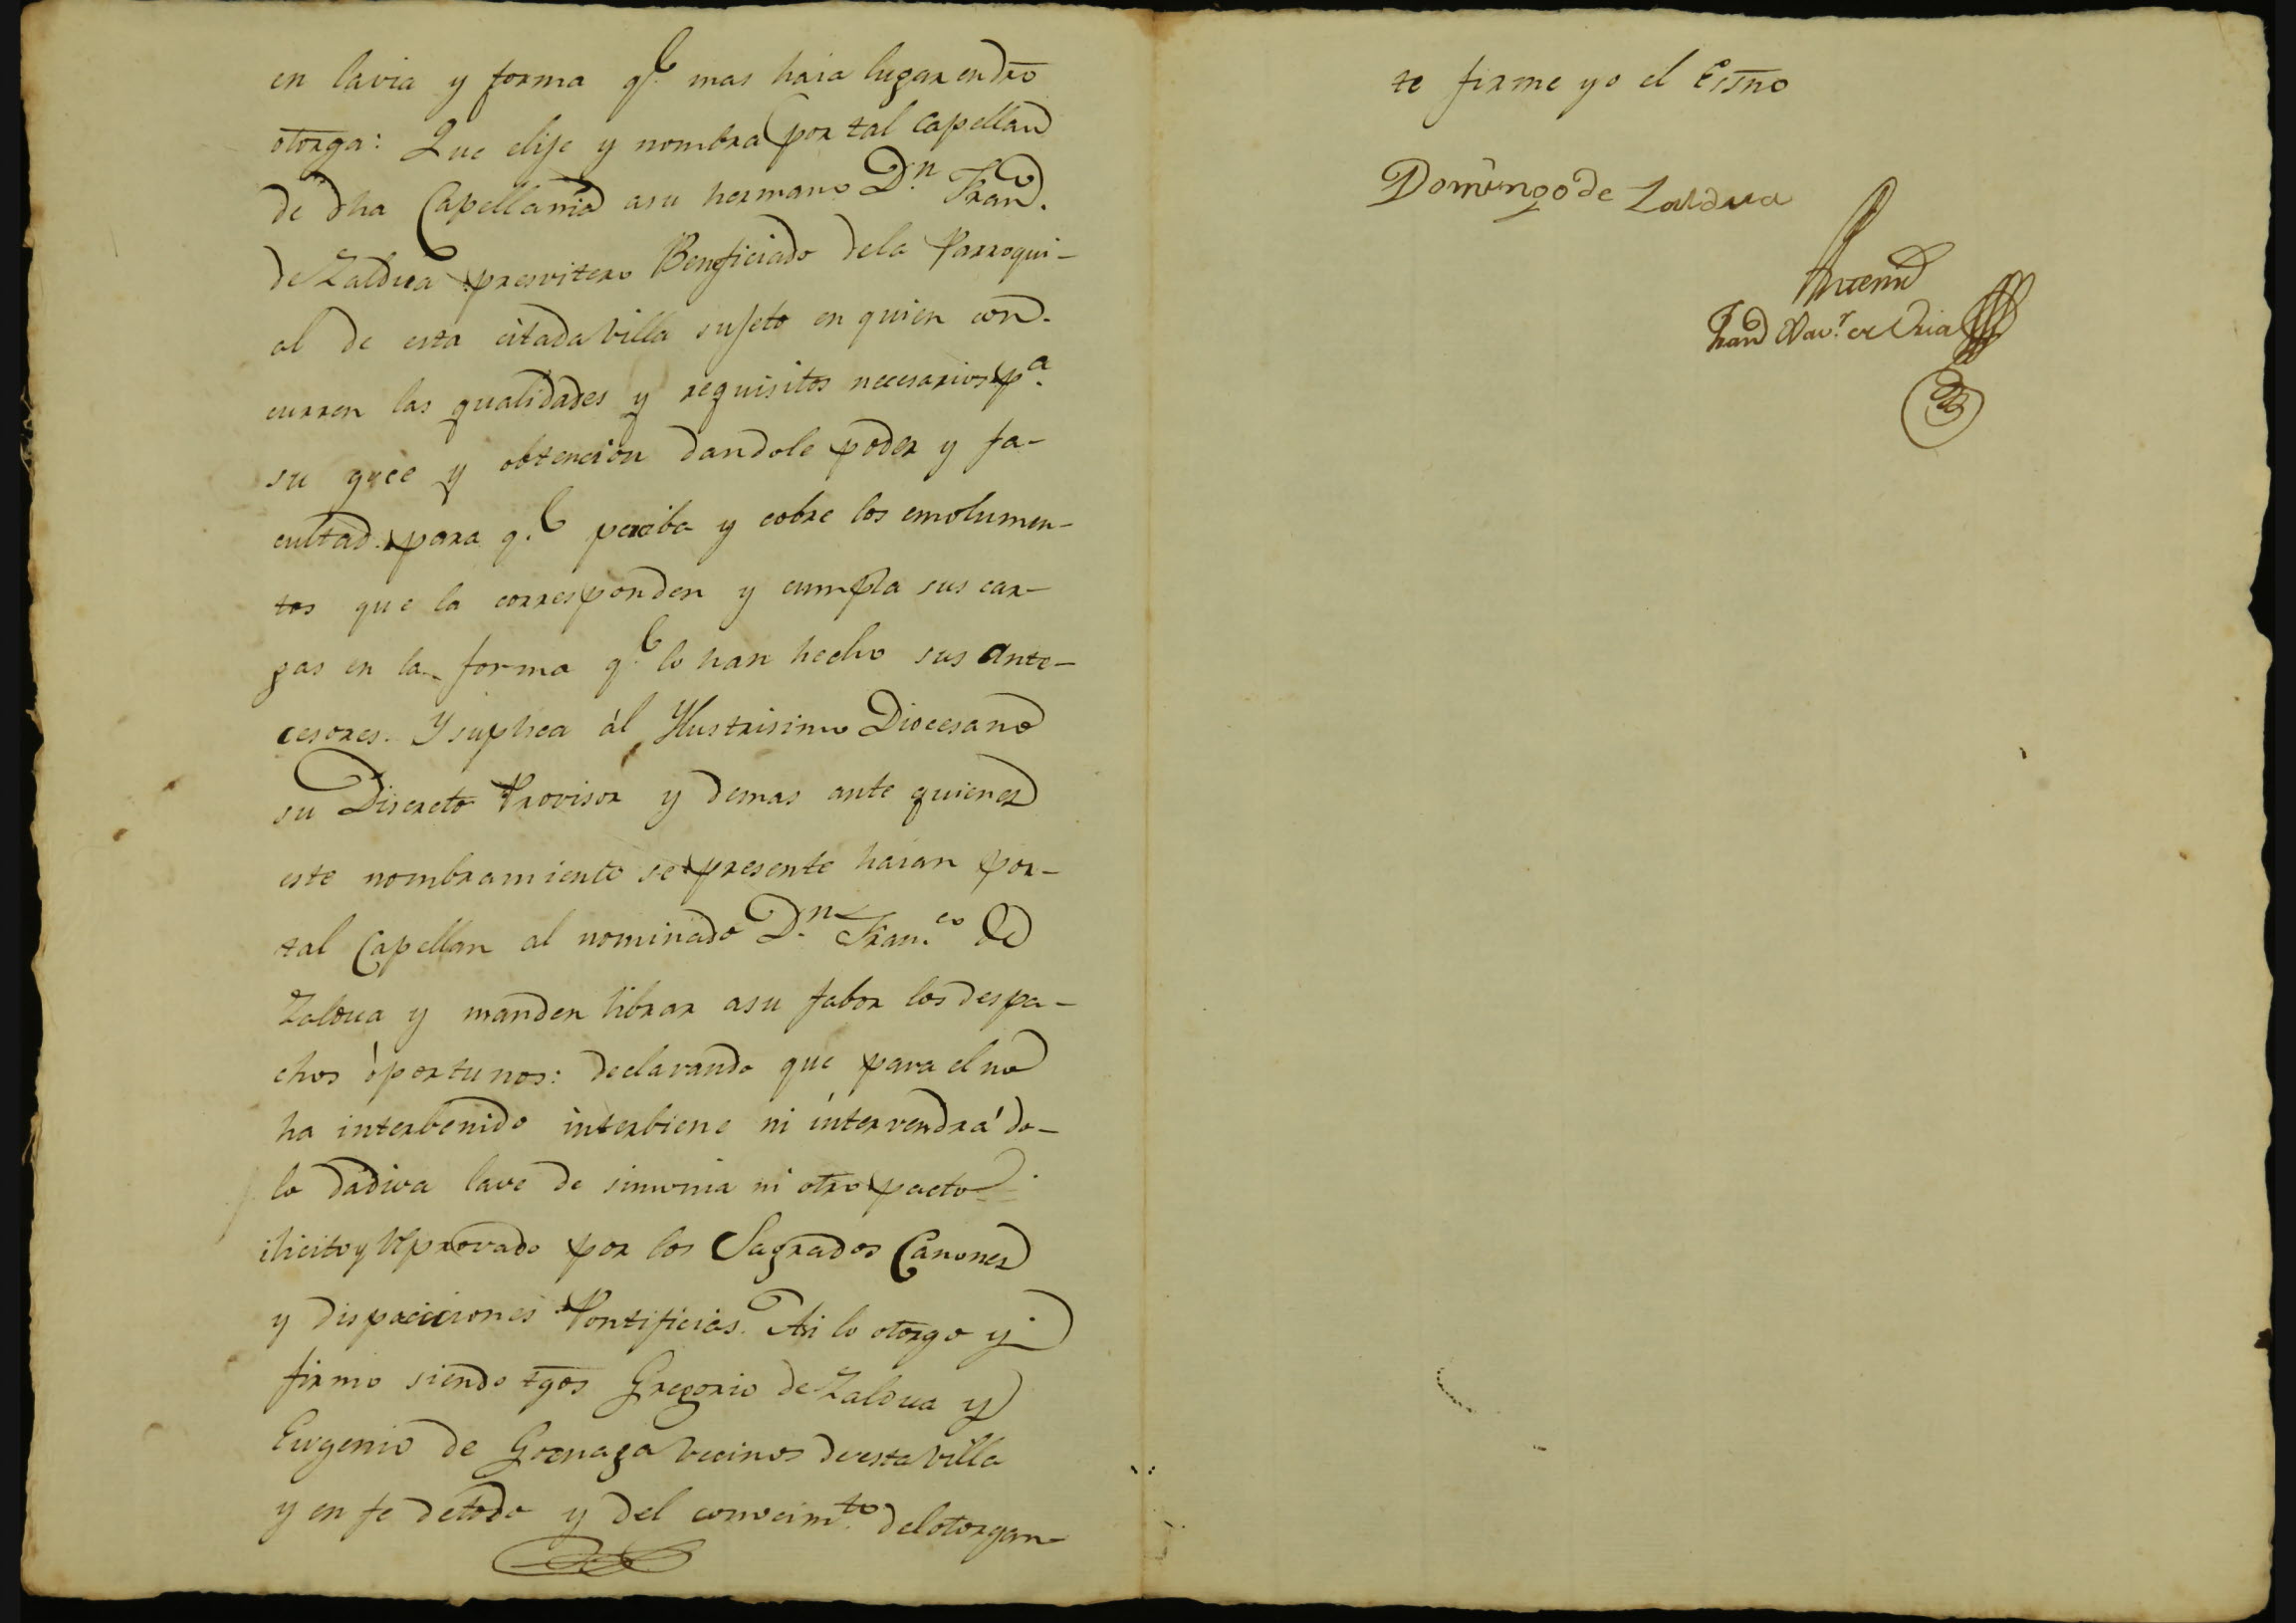 en lavia y forma q.e mas haia lugar endro
otorga: Que elije y nombra por tal Capellan
de dha Capellania asu hermano D.n Fran.co
de Zaldua presvitero Beneficiado dela Parroqui-
al de esta citada villa sujeto en quien con-
curren las qualidades y requisitos necesarios p.a
su goce y obtencion dandole poder y fa-
cultad para q.e perciba y cobre los emolumen-
tos que la corresponden y cumpla sus car-
gas en la forma q.e lo han hecho sus ante-
cesores. Y suplica ál Yllustrisimo Diocesano
su Discreto Provisor y demas ante quienes
este nombramiento se presente haian por-
tal Capellan al nominado D.n Fran.co de
Zaldua y manden librar asu fabor los despa-
chos óportunos: declarando que para el no
ha interbenido interbiene ni intervendrá do-
lo dadiva lave de simonia ni otro pacto
ilicito y reprovado por los Sagrados Canones
y dispociciones Pontificias. Asi lo otorgo y
firmo siendo tgos Gregorio de Zaldua y
Eugenio de Goenaga vecinos de esta villa
y en fe detodo y del conocim.to delotorgan-
te firme yo el Essno
Domingo de Zaldua
Antemi
Fran Xav.r de Oria